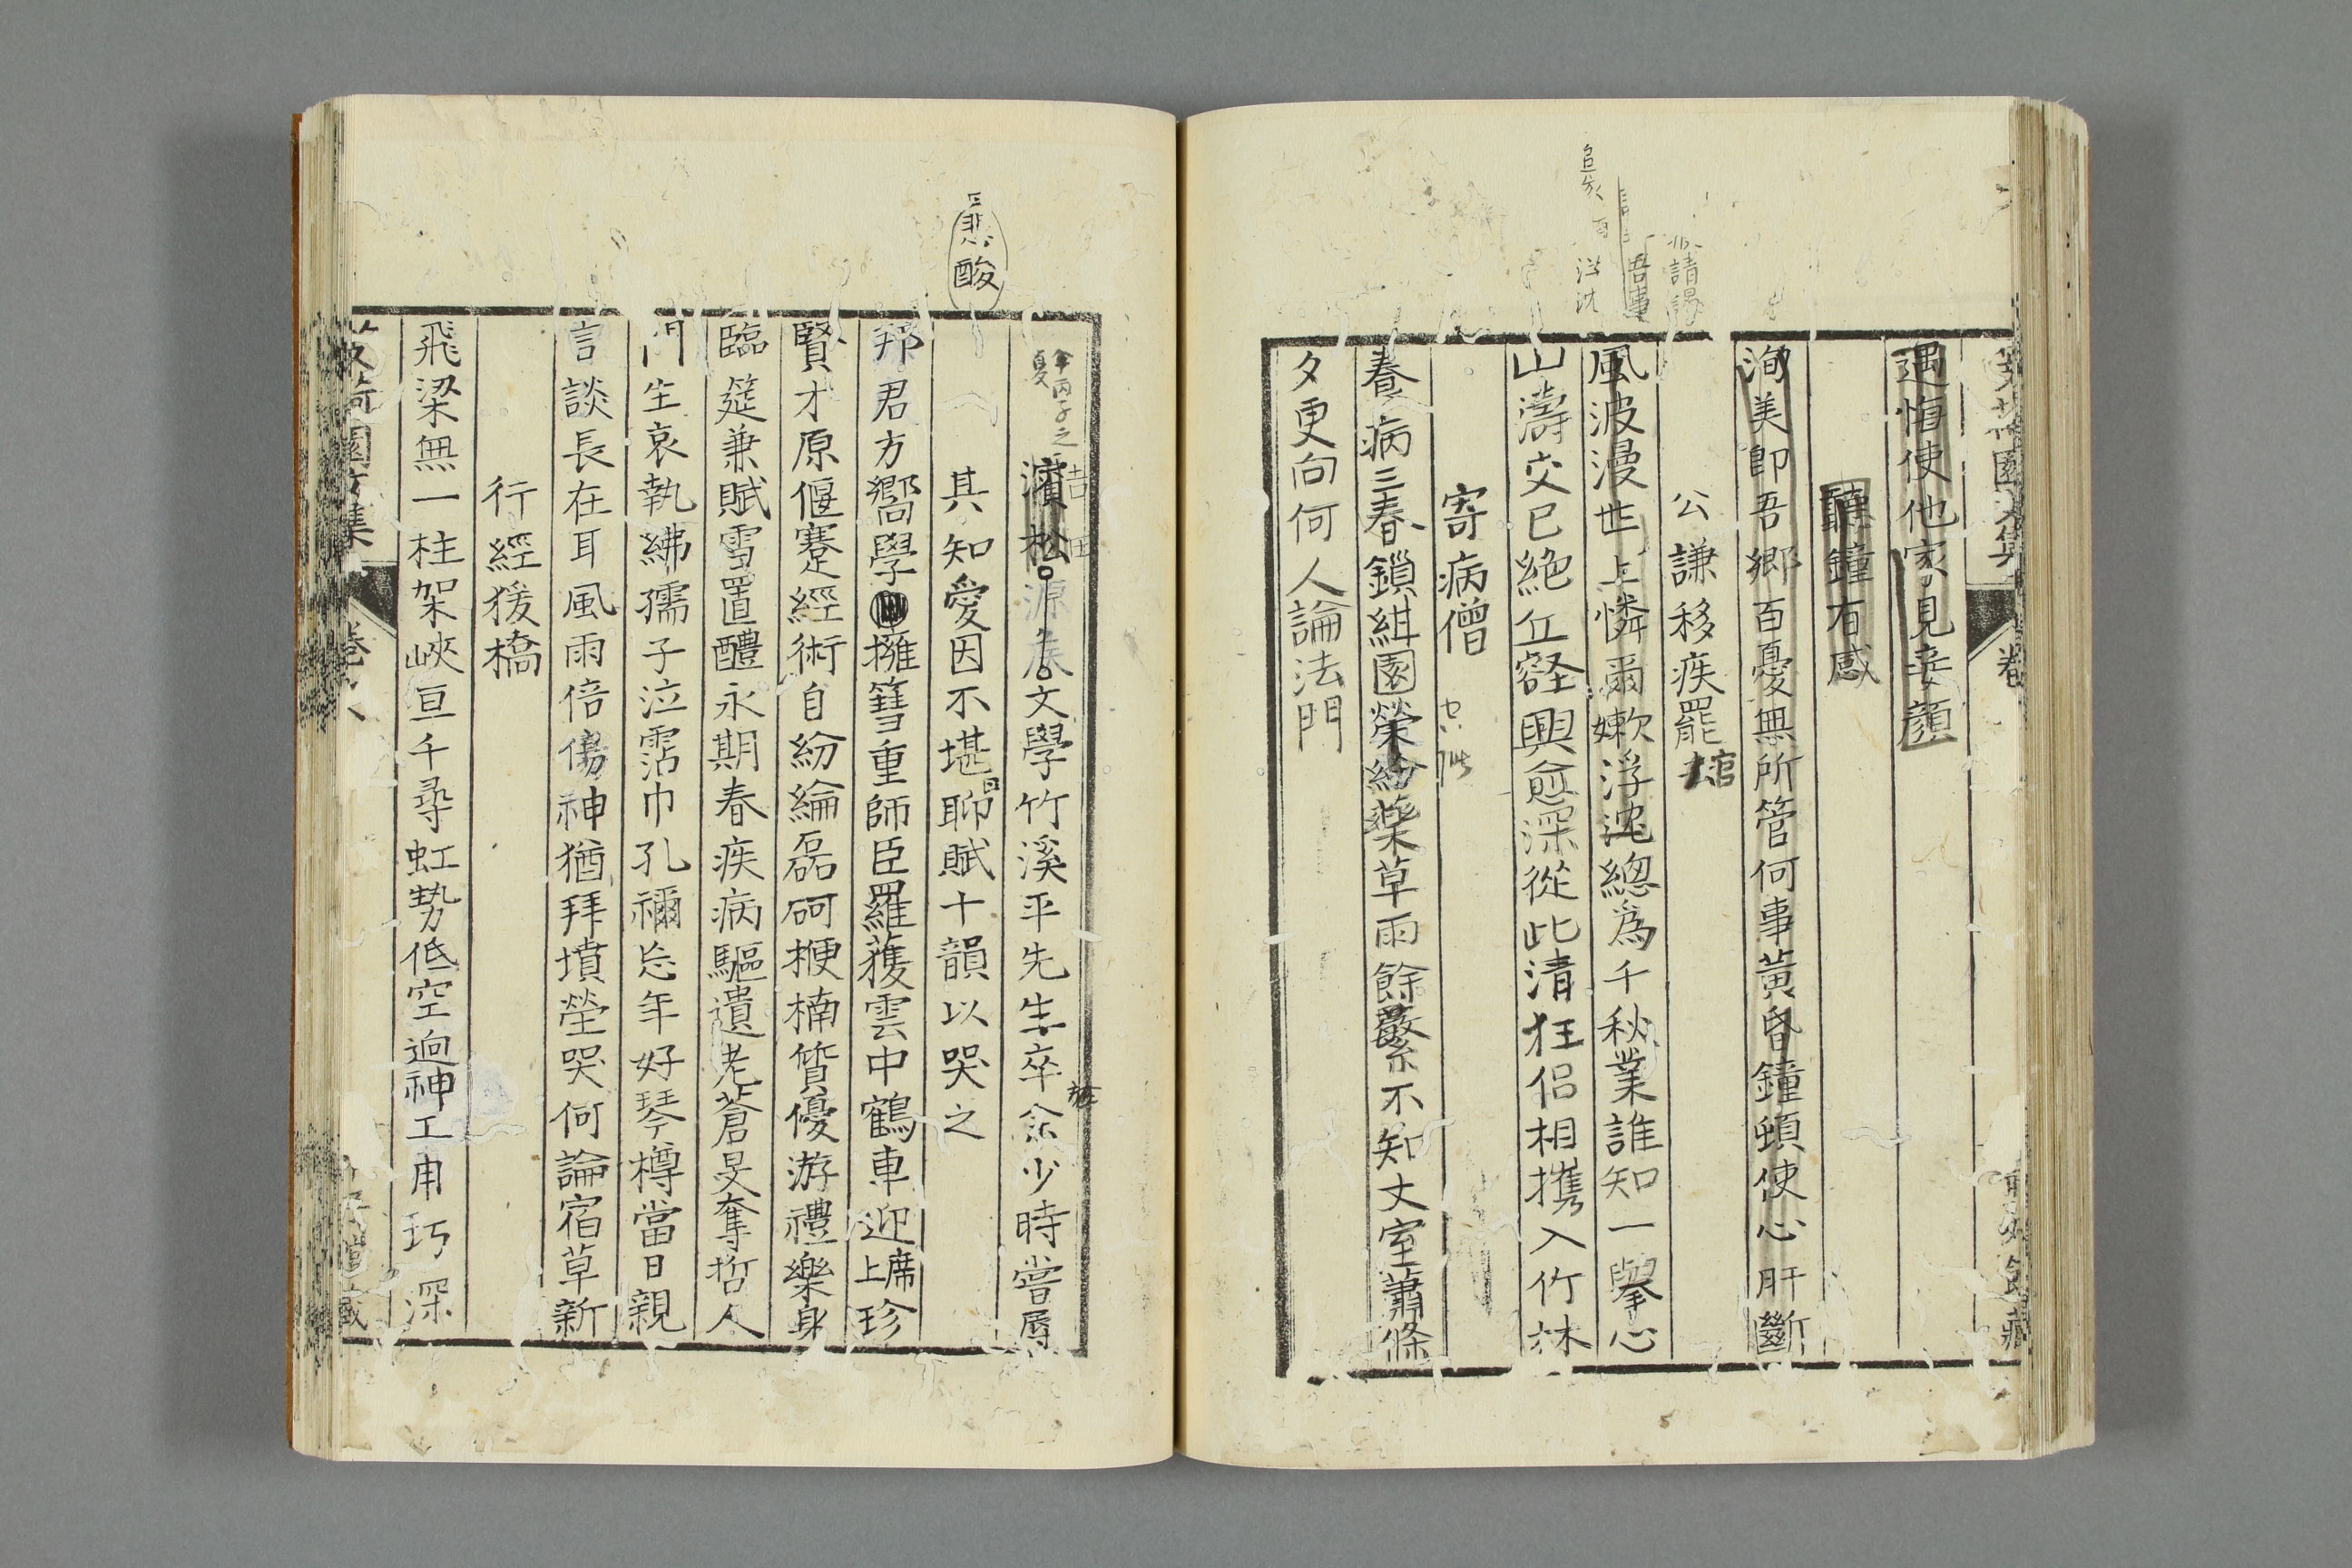 遇悔使他家見妾顏
聽鐘有感
洵美即吾鄉百憂無所管何事黃昏鐘頓使心肝斷
公謙移疾罷官
風波漫世上憐爾嫩浮沈總為千秋業誰知一擧心
山濤交已絕丘壑興愈深從此清狂侶相携入竹林
寄病僧
春病三春鎖紺園榮紛藥草雨餘繁不知丈室蕭條
夕更向何人論法門
悲酸
濱松源度文學竹溪平先生卒余少時嘗辱
其知愛因不堪聊賦十韻以哭之
邦君方嚮學擁篲重師臣羅蒦雲中鶴車迎席上珍
賢才原偃蹇經術自紛綸磊砢楩楠質優游禮樂身
臨筵兼賦雪置醴永期春疾病驅遺老蒼旻奪哲人
門生哀執紼孺子泣霑巾孔禰忘年好琴樽當日親
言談長在耳風雨倍傷神猶拜墳塋哭何論宿草新
行經猨橋
飛梁無一柱架峽亘千尋虹勢低空逈神工用巧深